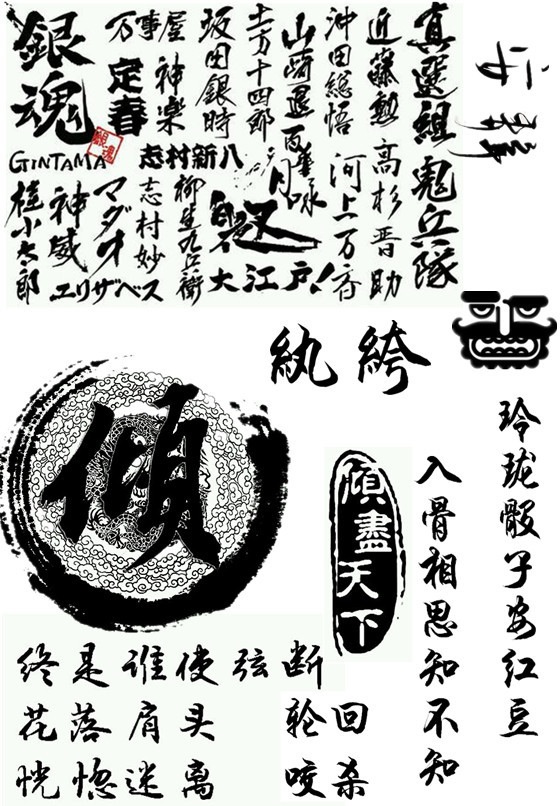 真選組 鬼兵隊
近藤勲 高杉晋助
沖田総悟 河上万斉
山崎退 百華 月詠
土方十四郎
坂田銀時
万事屋
神楽
定春
銀魂
GINTAMA
志村新八
大江戸!
柳生九兵衛
志村妙
マダオ
神威
桂小太郎
エリザベス
紈絝
玲珑骰子安红豆
入骨相思知不知
傾
傾盡天下
终是谁使弦断
花落肩头
恍惚迷离
轮回
咬杀